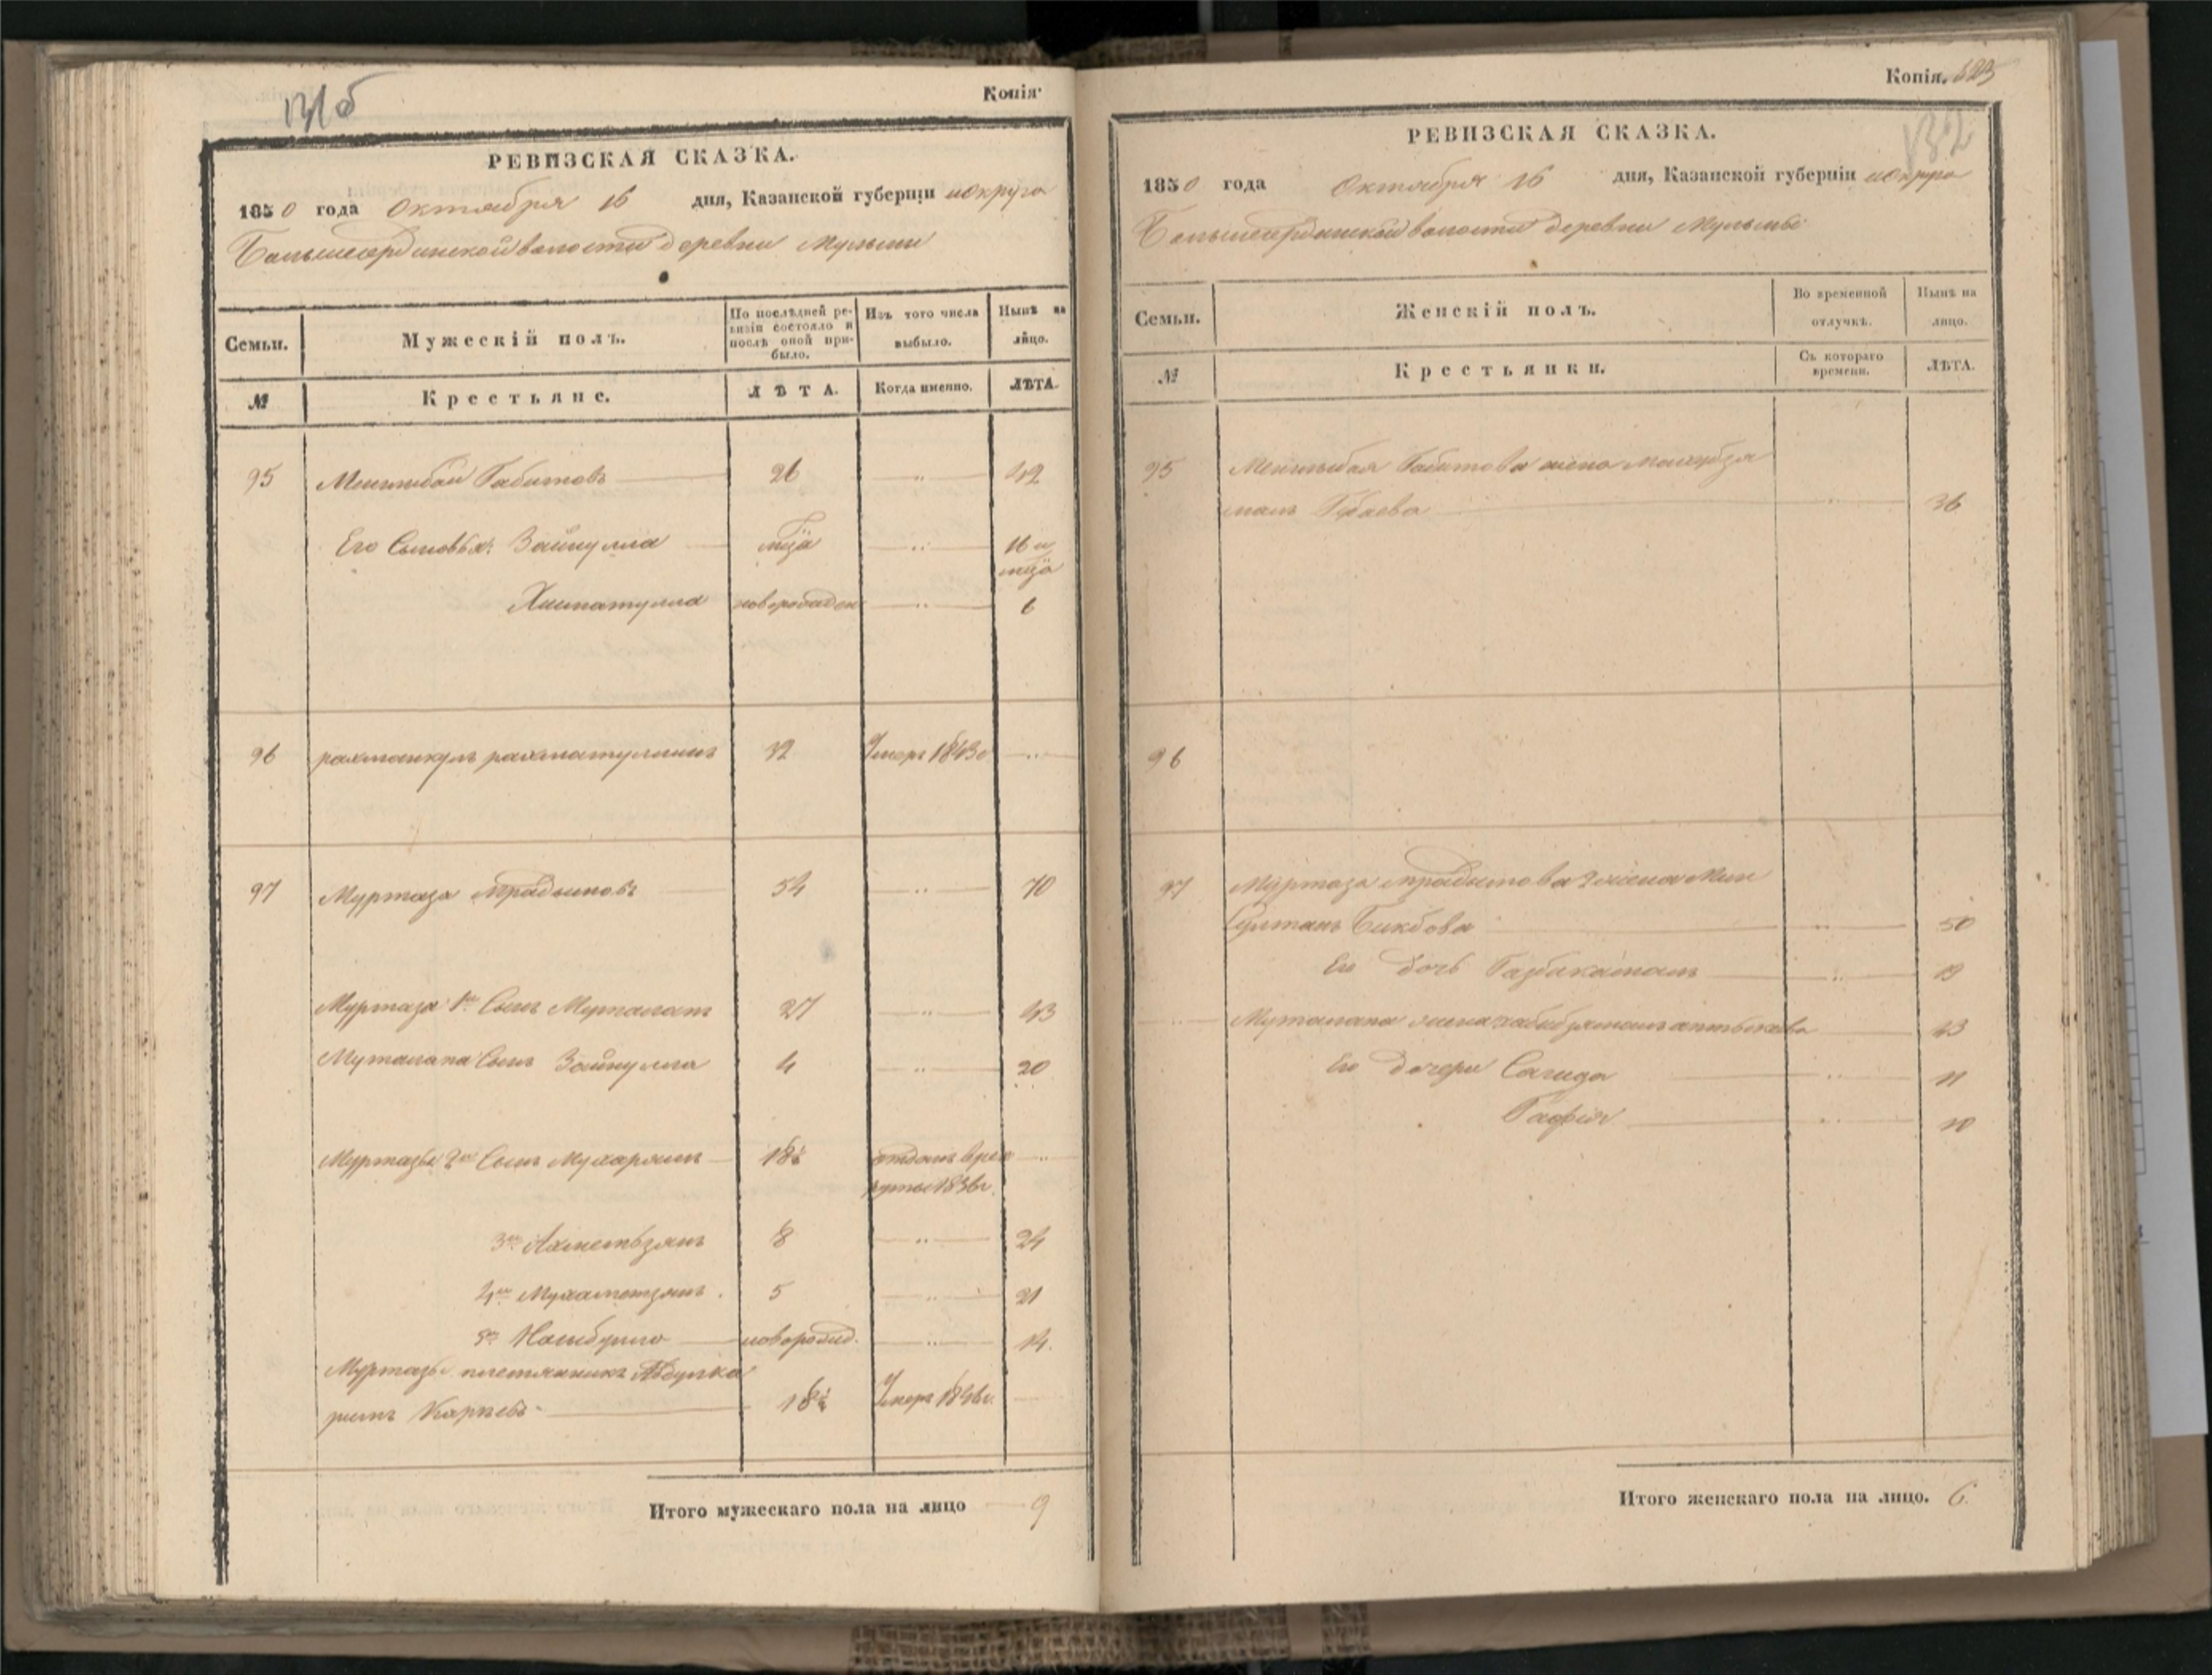 Копія.
РЕВИЗСКАЯ СКАЗКА.
1850 года Октября 16 дня, Казанской губерніи и округа
Большесердинской волости деревни Мульмы
Семьи. Мужескій полъ. По послѣдней ревизіи состояло и послѣ оной прибыло. Изъ того числа выбыло. Нынѣ на лицо.
№ Крестьяне. ЛѢТА. Когда именно. ЛѢТА.
95 Менглибай Габитовъ 26 42
Его Сыновья: Зайнулла 16 и
Хисматулла новорожден 6
96 рахманкулъ рахматуллинъ 32 Умеръ 1843г
97 Муртаза 54 70
Муртаза 1й Сынъ Муталапъ 27 43
Муталапа Сынъ Зайнулла 4 20
Муртазы 2й Сынъ Мухарямъ 18½ отданъ врек
руты 1836г.
3й Ахметьзянъ 8 24
4й Мухаметзянъ. 5 21
5й новорожд. 14.
Муртазы племянникъ Абдулка
римъ 18½ Умеръ 1846г.
Итого мужескаго пола на лицо 9
Копія. 523
132
РЕВИЗСКАЯ СКАЗКА.
1850 года Октября 16 дня, Казанской губерніи и округа
Большесердинской волости деревни Мульмы
Семьи. Женскій полъ. Во временной отлучкѣ. Нынѣ на лицо.
№ Крестьянки. Съ котораго времени. ЛѢТА.
95 Менглибая Габитова жена
Губаева 36
96
97 Муртаза жена Мин
Султанъ Бикбова 50
Его дочь 19
Муталапа жена 43
Его дочери Сагида 11
Гафія 10
Итого женскаго пола на лицо. 6.